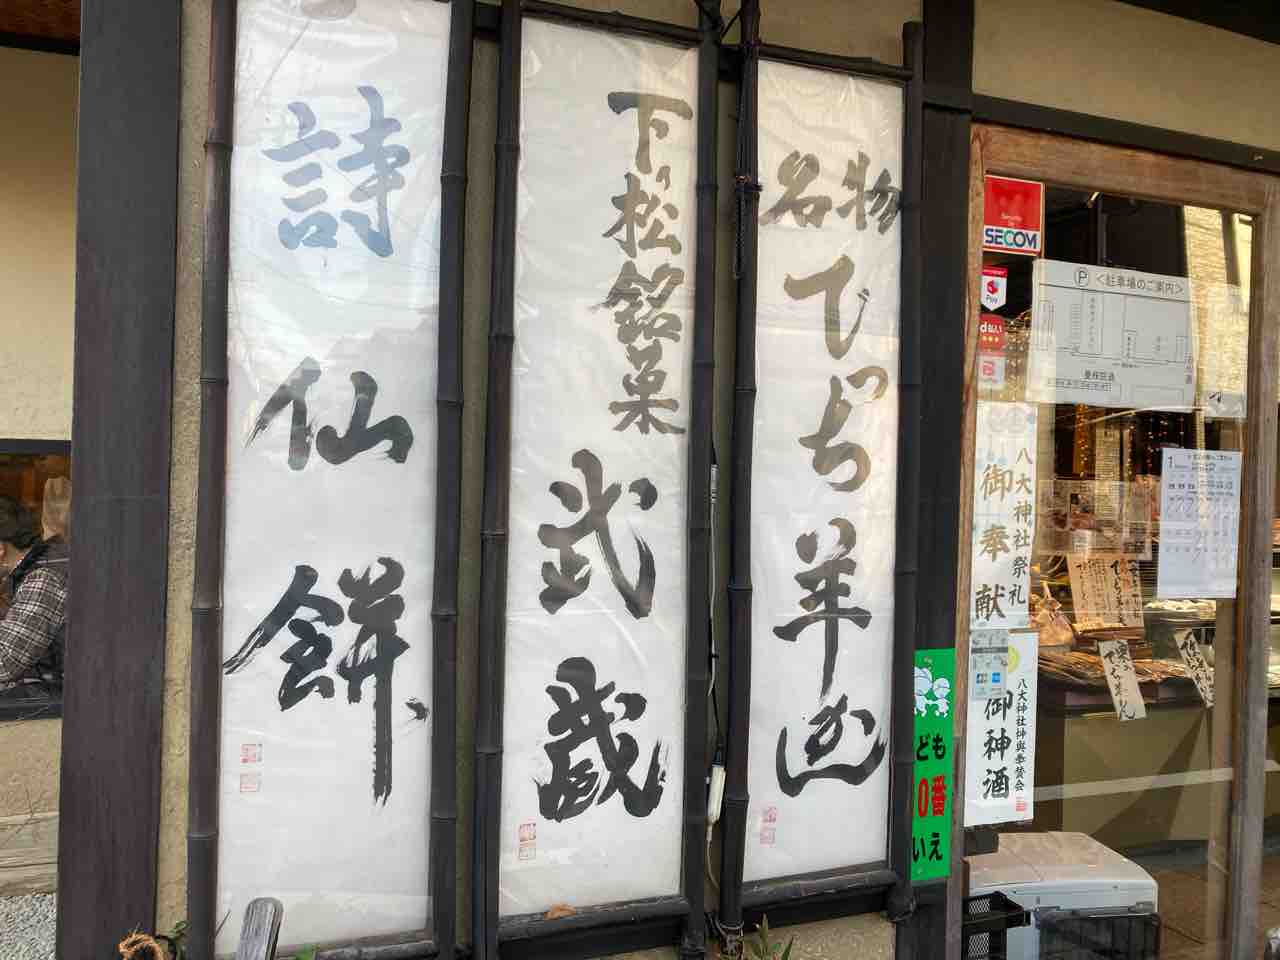 名物
でっち羊羹
下り松銘菓
武蔵
詩仙餅
SECOM
Pay
d払い
Ⓟ <駐車場のご案内>
曼殊院道
八大神社祭礼
御奉献
八大神社神輿奉賛会
御神酒
ども
0番
いえ